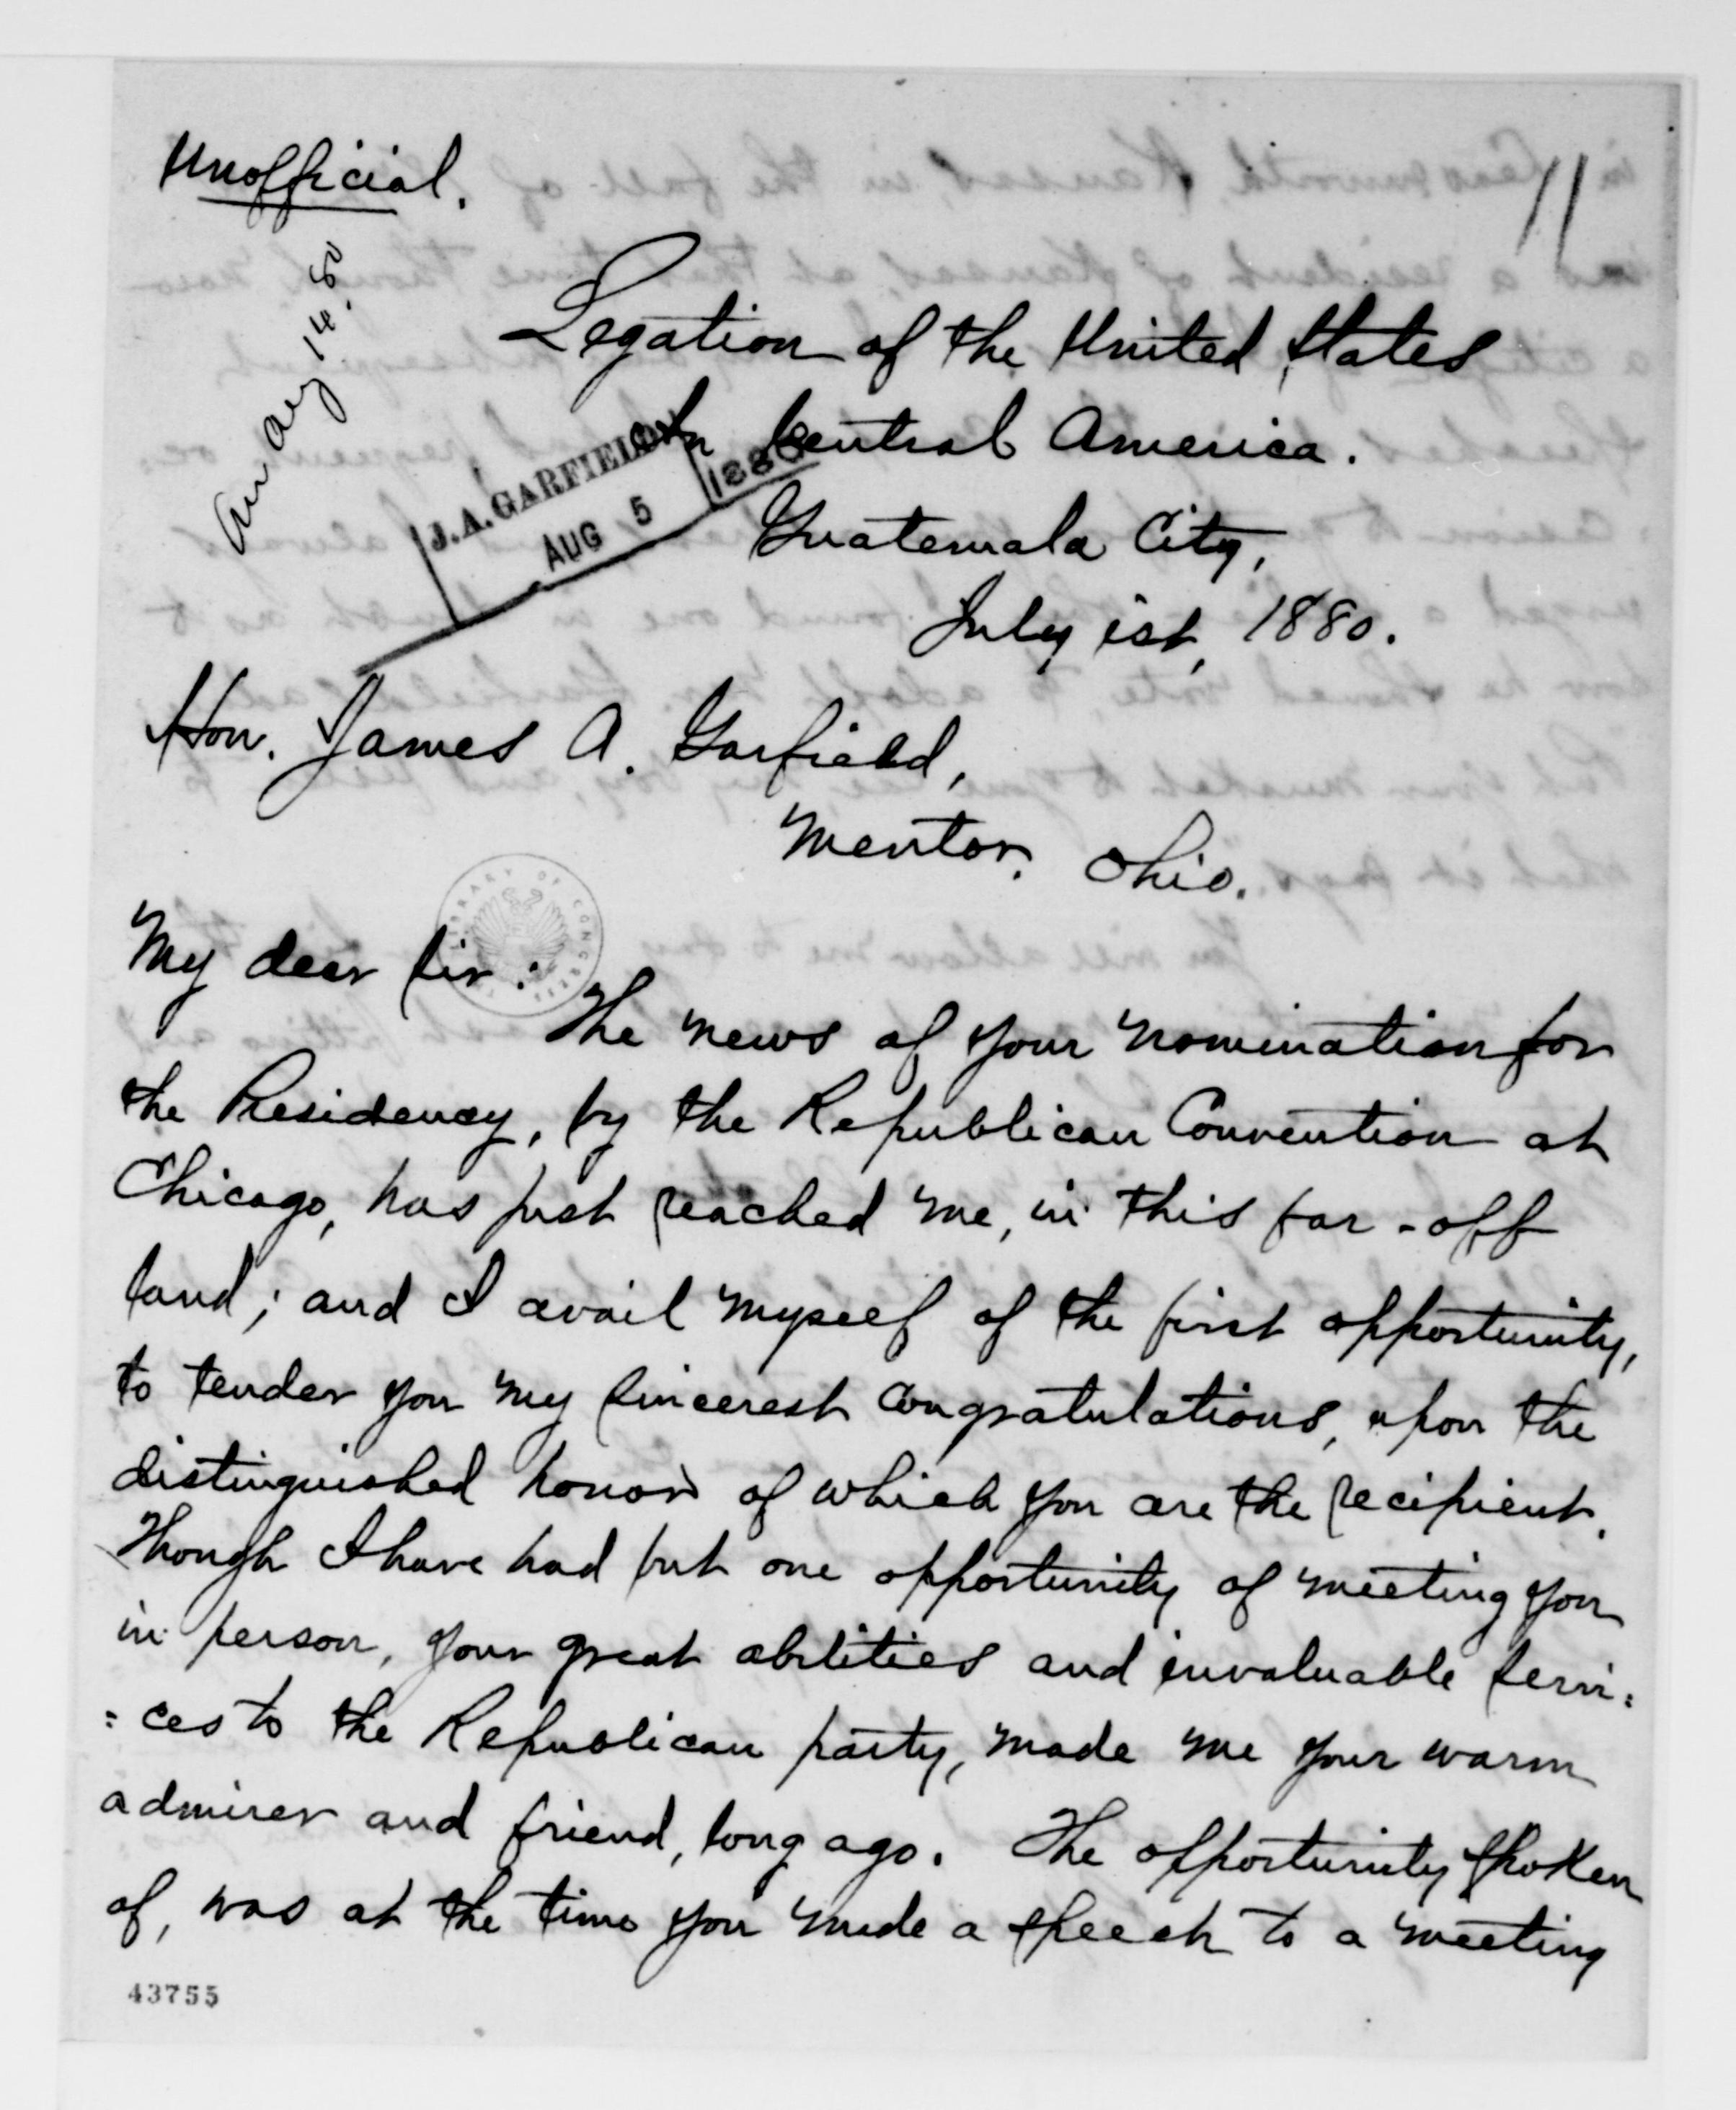 Unofficial.
11
Ans Aug 14. 80
Legation of the United States
In Central America.
J. A. GARFIELD
AUG 5 1880
Guatemala City,
July 1st, 1880.
Hon. James A. Garfield,
Mentor, Ohio.
LIBRARY OF CONGRESS
My dear Sir:
The news of your nomination for
the Presidency, by the Republican Convention at
Chicago, has just reached me, in this far-off
land; and I avail myself of the first opportunity,
to tender you my sincerest congratulations, upon the
distinguished honor of which you are the recipient.
Though I have had but one opportunity of meeting you
in person, your great abilities and invaluable servi=
=ces to the Republican party, made me your warm
admirer and friend, long ago. The opportunity spoken
of, was at the time you made a speech to a meeting
43755